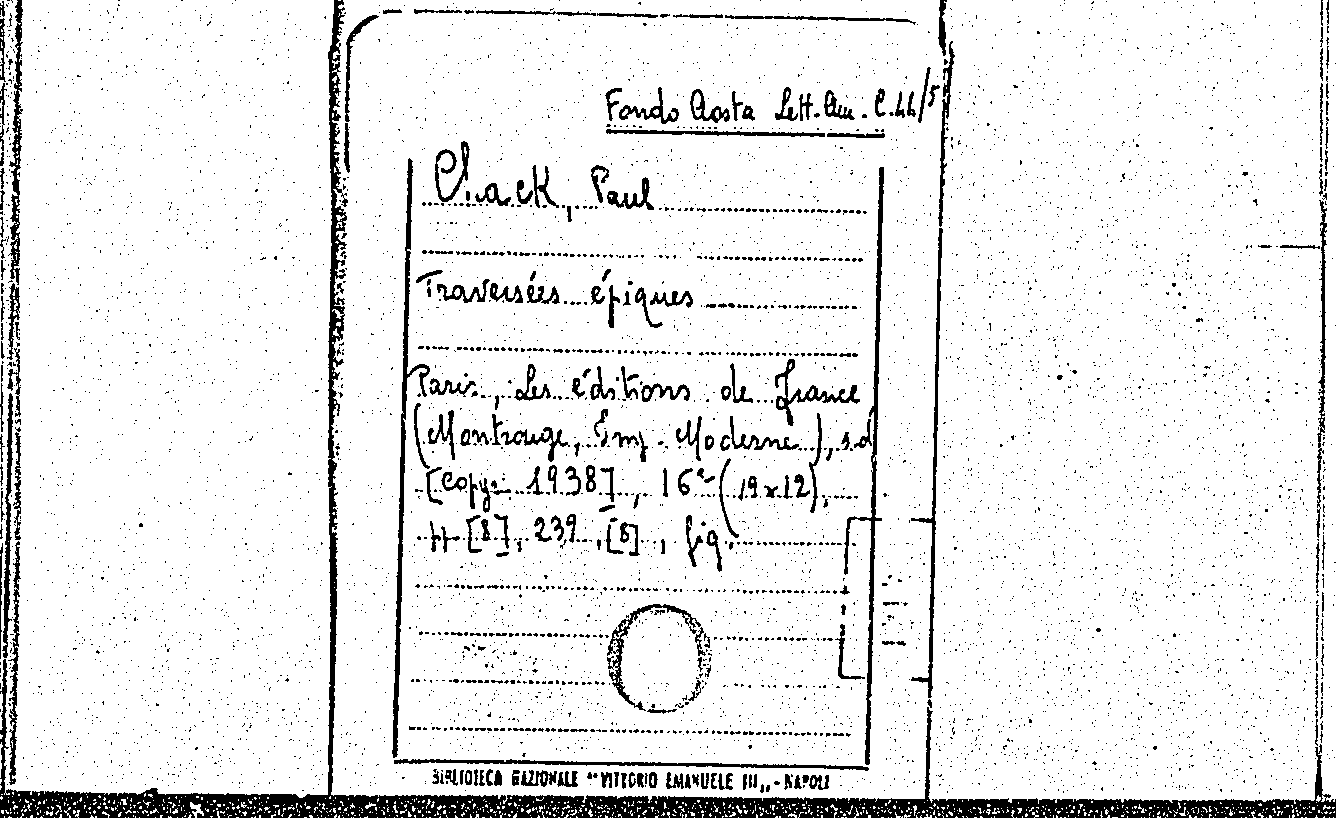 Fondo Aosta Lett. Am. C. 44/5
Chack, Paul
Traversées épiques
Paris, Les éditions de France
(Montrouge, Imp. Moderne), s.d
[copyr 1938], 16° (19x12),
pp [8], 239, [8], fig.
BIBLIOTECA NAZIONALE "VITTORIO EMANUELE III„ - NAPOLI